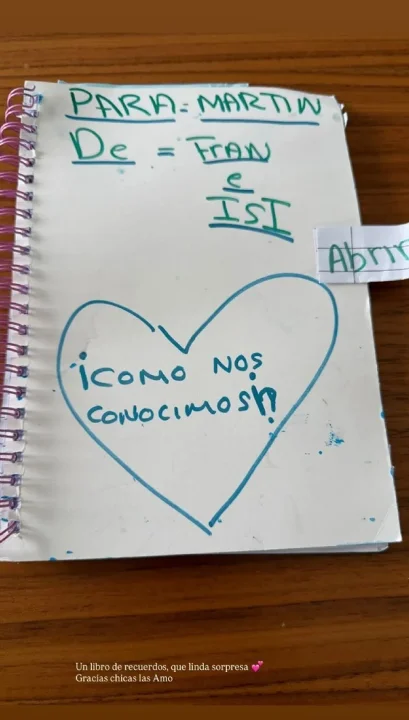 PARA: MARTIN
De = FRAN
e
ISI
Abrir
¡COMO NOS
CONOCIMOS!?
Un libro de recuerdos, que linda sorpresa 💕
Gracias chicas las Amo